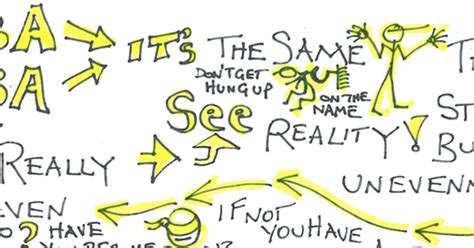 SA
SA
IT'S THE SAME
DON'T GET
HUNG UP
ON THE
NAME
See
REALITY!
ST
BU
REALLY
UNEVENM
EVEN
O? HAVE
IF NOT
YOU HAVE
A